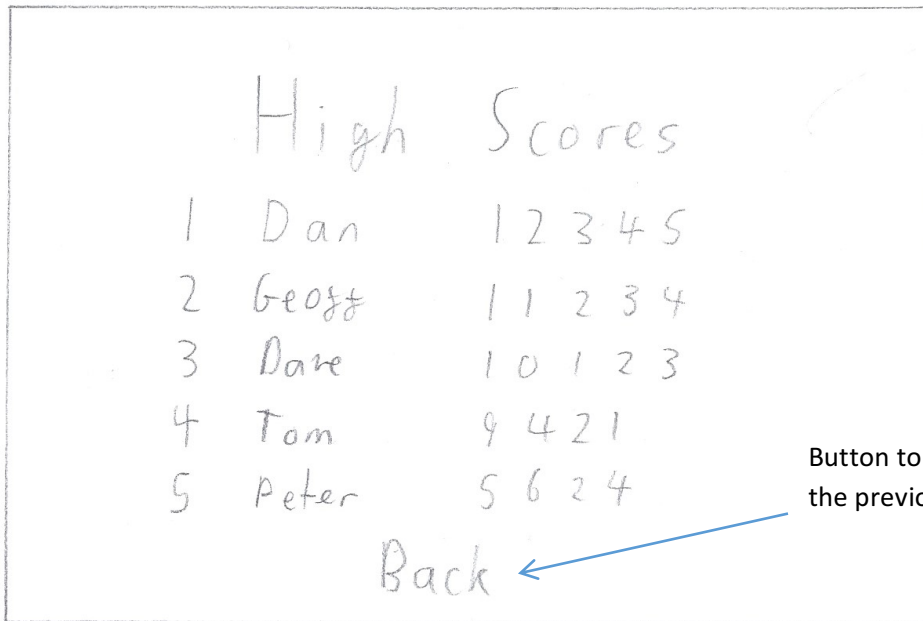 High Scores
1 Dan 12345
2 Geoff 11234
3 Dave 10123
4 Tom 9421
5 Peter 5624
Button to
the previo
Back